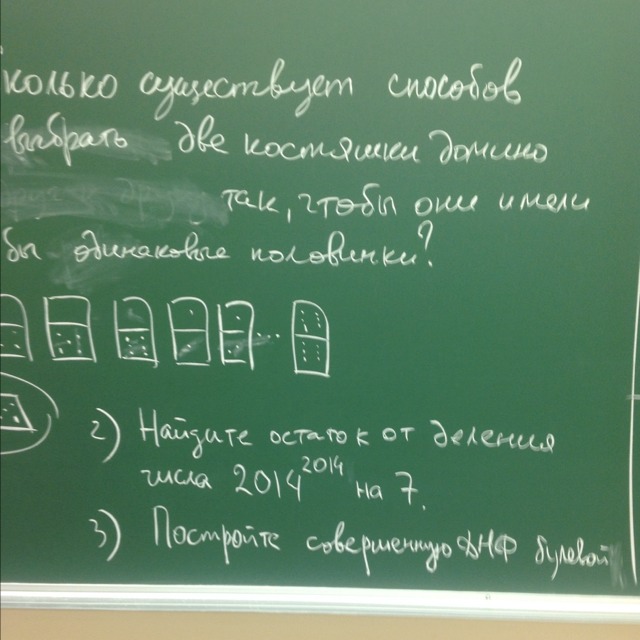 колько существует способов
выбрать две костяшки домино
так, чтобы они имели
бы одинаковые половинки?
...
2) Найдите остаток от деления
числа 2014²⁰¹⁴ на 7.
3) Постройте совершенную ДНФ булевой